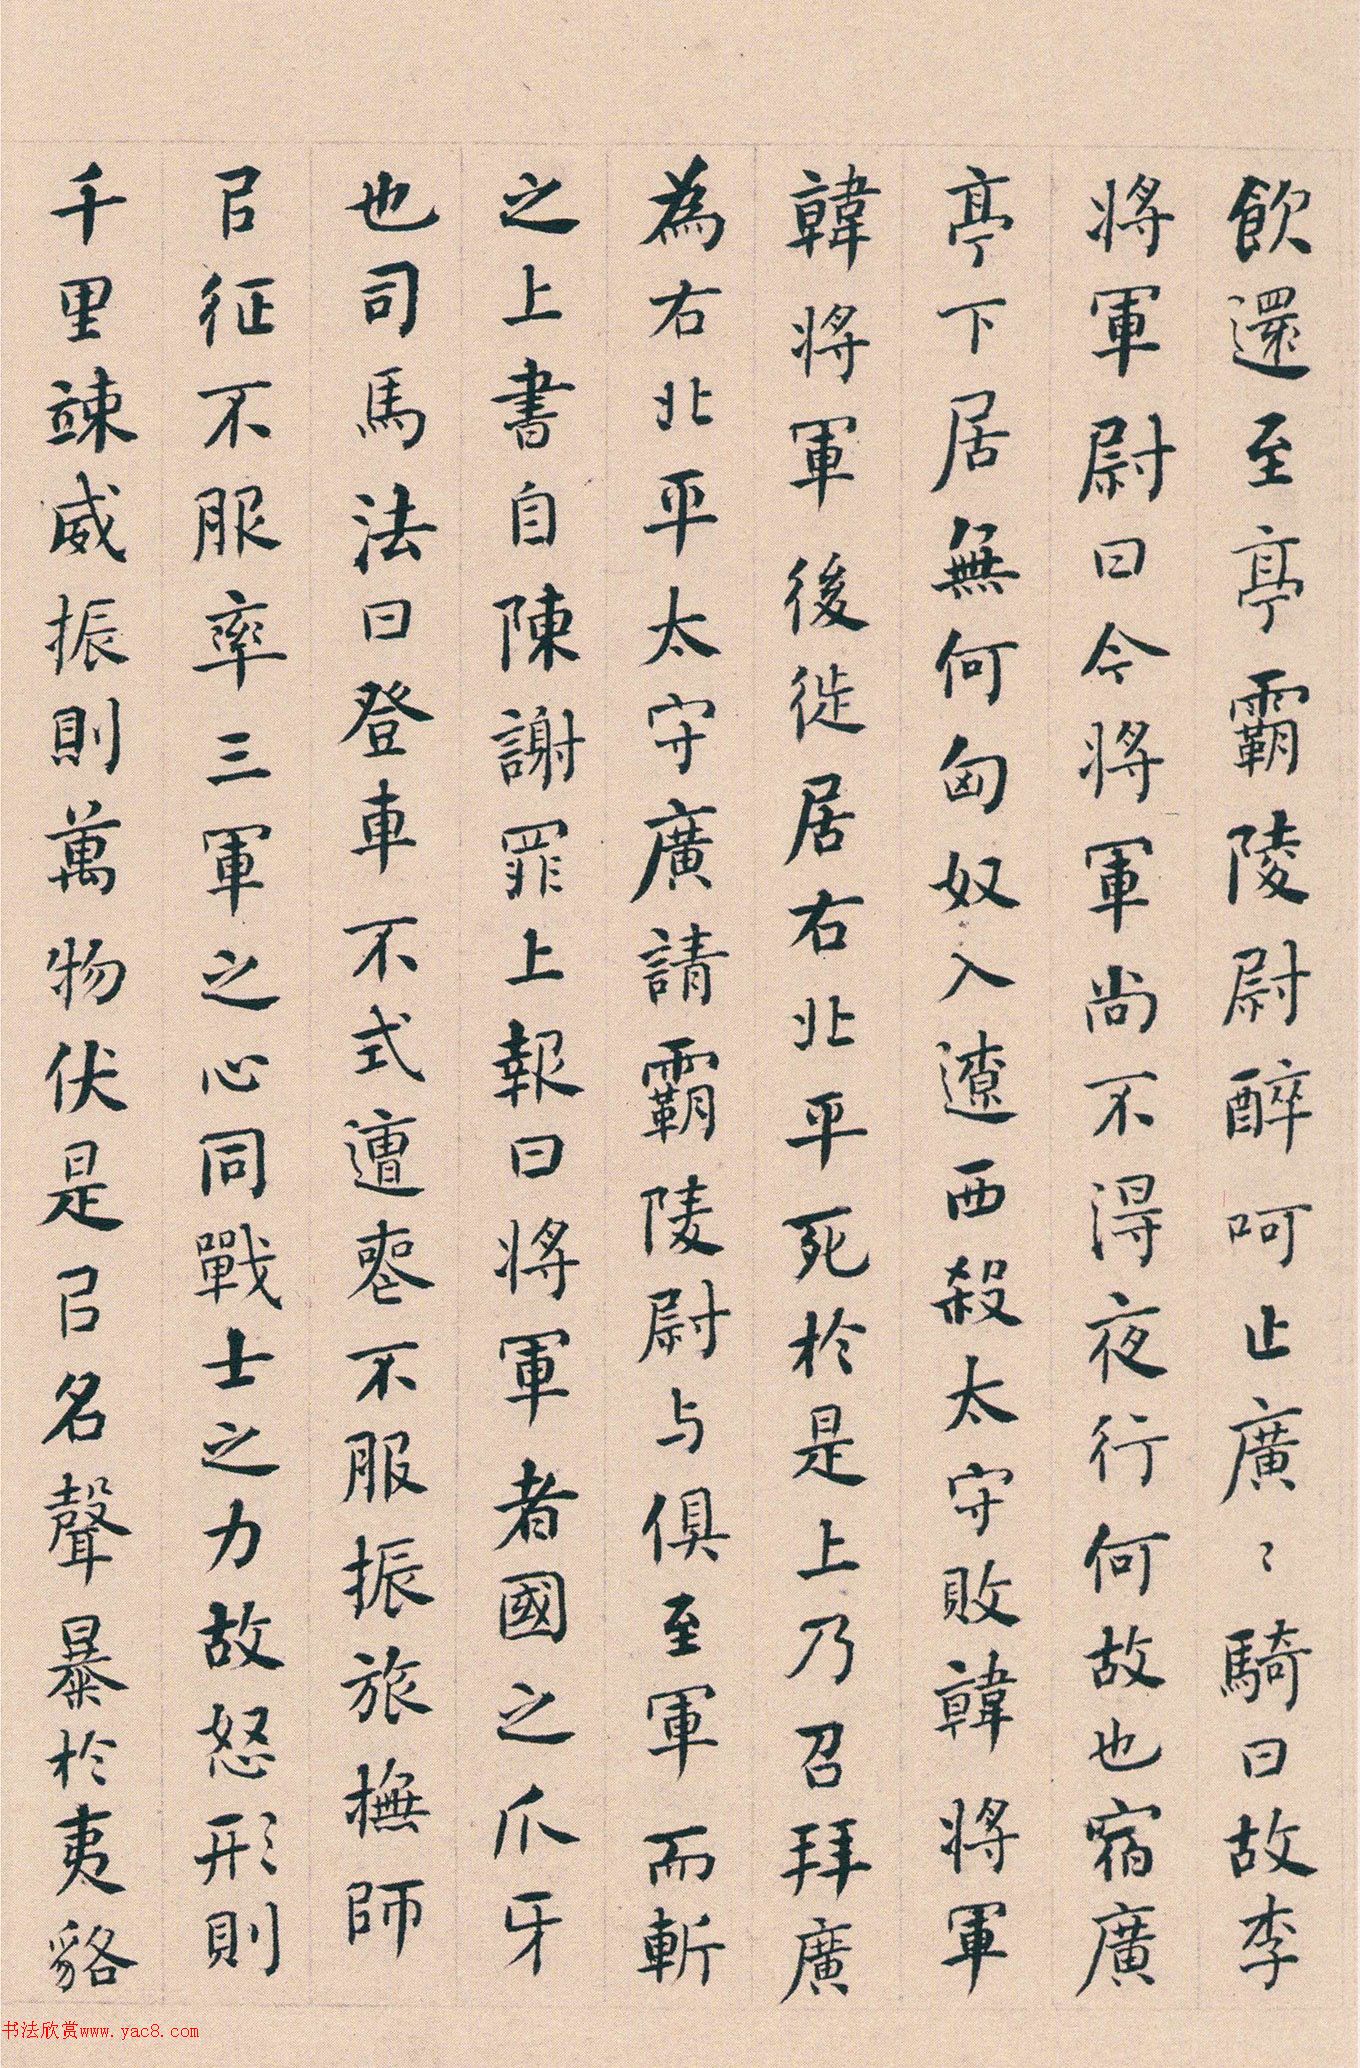 飲還至亭霸陵尉醉呵止廣〻騎曰故李
将軍尉曰今将軍尚不得夜行何故也宿廣
亭下居無何匈奴入遼西殺太守敗韓将軍
韓将軍後徙居右北平死於是上乃召拜廣
為右北平太守廣請霸陵尉与俱至軍而斬
之上書自陳謝罪上報曰将軍者國之爪牙
也司馬法曰登車不式遭喪不服振旅撫師
㠯征不服率三軍之心同戰士之力故怒形則
千里竦威振則萬物伏是㠯名聲暴於夷貉
书法欣赏www.yac8.com